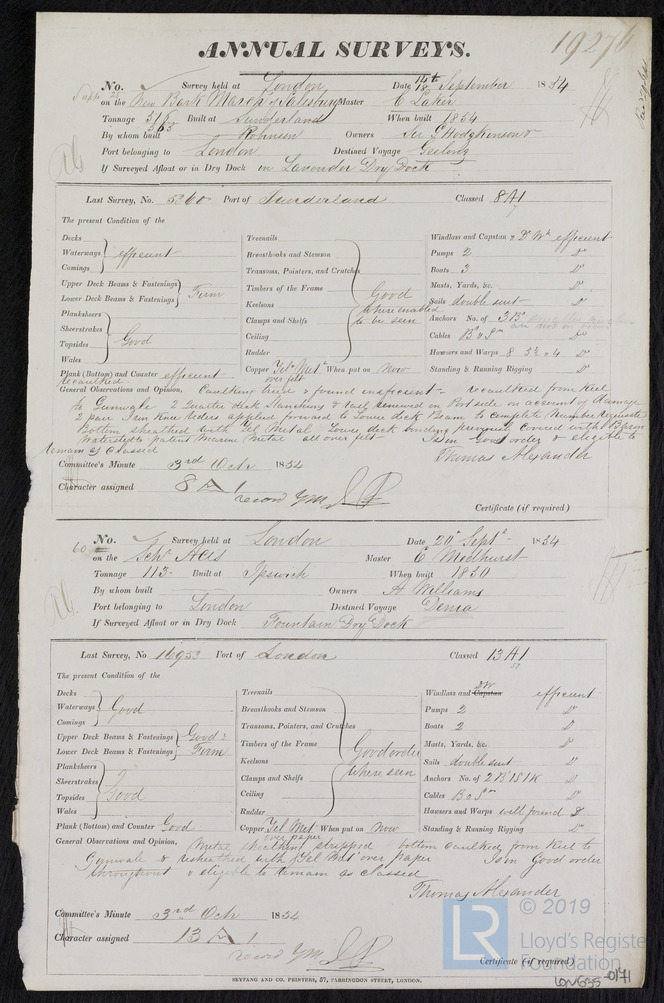 19276
ANNUAL SURVEYS.
No. Survey held at London Date 15th 18 September 1854
on the New Bark March's Salesbury Master C Laker
Tonnage 516 563 Built at Sunderland When built 1854
By whom built Robinson Owners Hodgkinson &
Port belonging to London Destined Voyage Geelong
If Surveyed Afloat or in Dry Dock in Lavender Dry Dock
Last Survey, No. 5360 Port of Sunderland Classed 8 A 1
The present Condition of the
Decks
Waterways efficient
Comings
Upper Deck Beams & Fastenings
Lower Deck Beams & Fastenings Firm
Planksheers
Sheerstrakes
Topsides Good
Wales
Plank (Bottom) and Counter efficient
recaulked
Treenails
Breasthooks and Stemson
Transoms, Pointers, and Crutches
Timbers of the Frame Good
Keelsons where enabled
Clamps and Shelfs to be seen
Ceiling
Rudder
Copper Yel. Met. When put on Now
over felt
Windlass and Capstan & Dº Wh efficient
Pumps 2 Dº
Boats 3 Dº
Masts, Yards, &c. Dº
Sails double suit Dº
Anchors No. of 3 B
Cables Dº
Hawsers and Warps 8 5½ & 4 Dº
Standing & Running Rigging Dº
General Observations and Opinion, Caulking tried & found inefficient - recaulked from Keel
to Gunwale 2 Quarter deck Stanchions & rail renewed on Port side on account of damage
2 pair Iron Knee riders applied forward to lower deck Beam to complete Number requisite
Bottom sheathed with Yel Metal Lower deck
patent Marine Metal all over felt Is in Good order & eligible to
remain as Classed Thomas Alexander
Committee's Minute 3rd Octr 1854
Character assigned 8 A 1
record YM
Certificate (if required)
60 No. Survey held at London Date 20th Septr 1854
on the Schr Acis Master C Medhurst
Tonnage 113 Built at Ipswich When built 1850
By whom built Owners H Williams
Port belonging to London Destined Voyage Denia
If Surveyed Afloat or in Dry Dock Fountain Dry Dock
Last Survey, No 16953 Port of London Classed 13 A 1
The present Condition of the
Decks
Waterways Good
Comings
Upper Deck Beams & Fastenings Good &
Lower Deck Beams & Fastenings Firm
Planksheers
Sheerstrakes
Topsides Good
Wales
Plank (Bottom) and Counter Good
Treenails
Breasthooks and Stemson
Transoms, Pointers, and Crutches
Timbers of the Frame Good order
Keelsons where seen
Clamps and Shelfs
Ceiling
Rudder
Copper Yel Met When put on Now
over paper
Windlass and Capstan efficient
Pumps 2 Dº
Boats 2 Dº
Masts, Yards, &c. Dº
Sails double suit Dº
Anchors No. of 2 B 1 S 1 K Dº
Cables Dº
Hawsers and Warps well found Dº
Standing & Running Rigging Dº
General Observations and Opinion, Metal sheathing stripped bottom caulked from Keel to
Gunwale & resheathed with Yel Met over paper Is in Good order
throughout & eligible to remain as classed
Thomas Alexander
Committee's Minute 3rd Octr 1854
Character assigned 13 A 1
record YM
Certificate (if required)
SEYFANG AND CO. PRINTERS, 57, FARRINGDON STREET, LONDON.
LR © 2019
Lloyd's Register
Foundation
LON655-0171